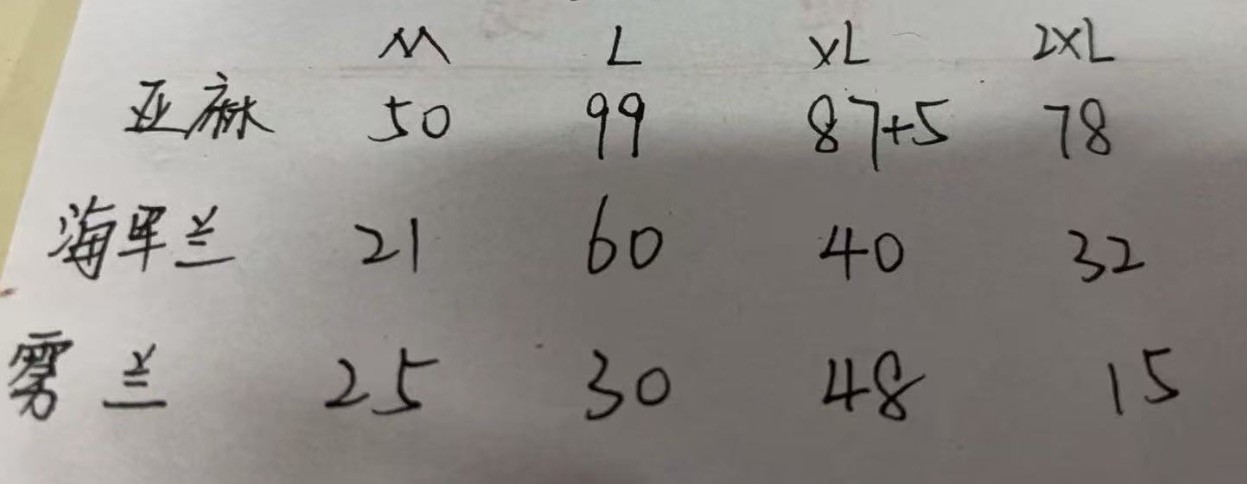 M L XL 2XL
亚麻 50 99 87+5 78
海军兰 21 60 40 32
雾兰 25 30 48 15